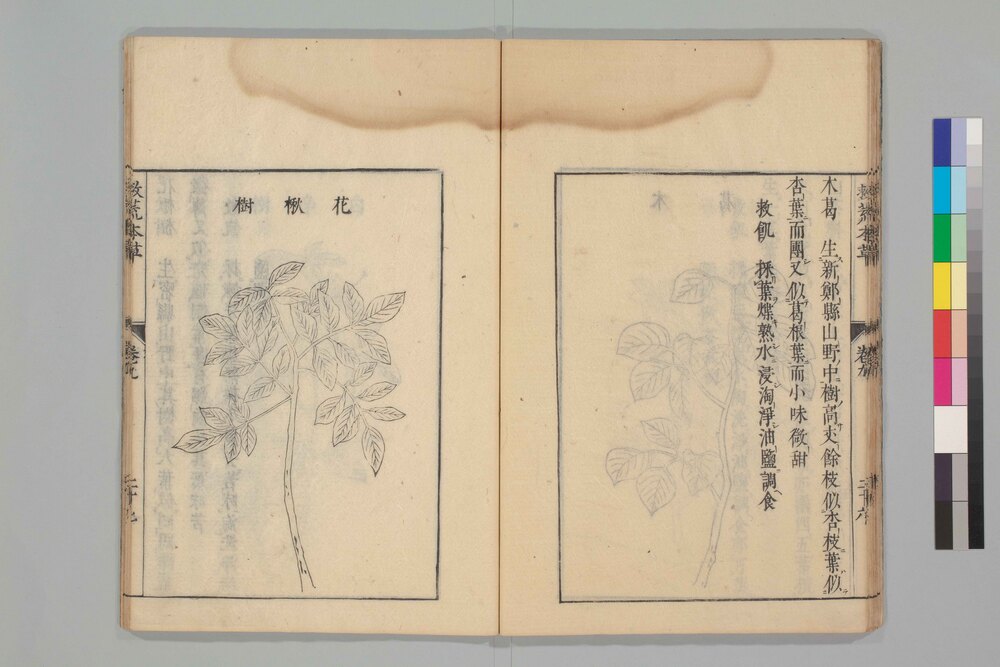 救荒本草
木葛 生新鄭縣山野中樹高丈餘枝似杏枝葉似
杏葉而團又似葛根葉而小味微甜
救飢 採葉煠熟水浸淘淨油鹽調食
花楸樹
救荒本草